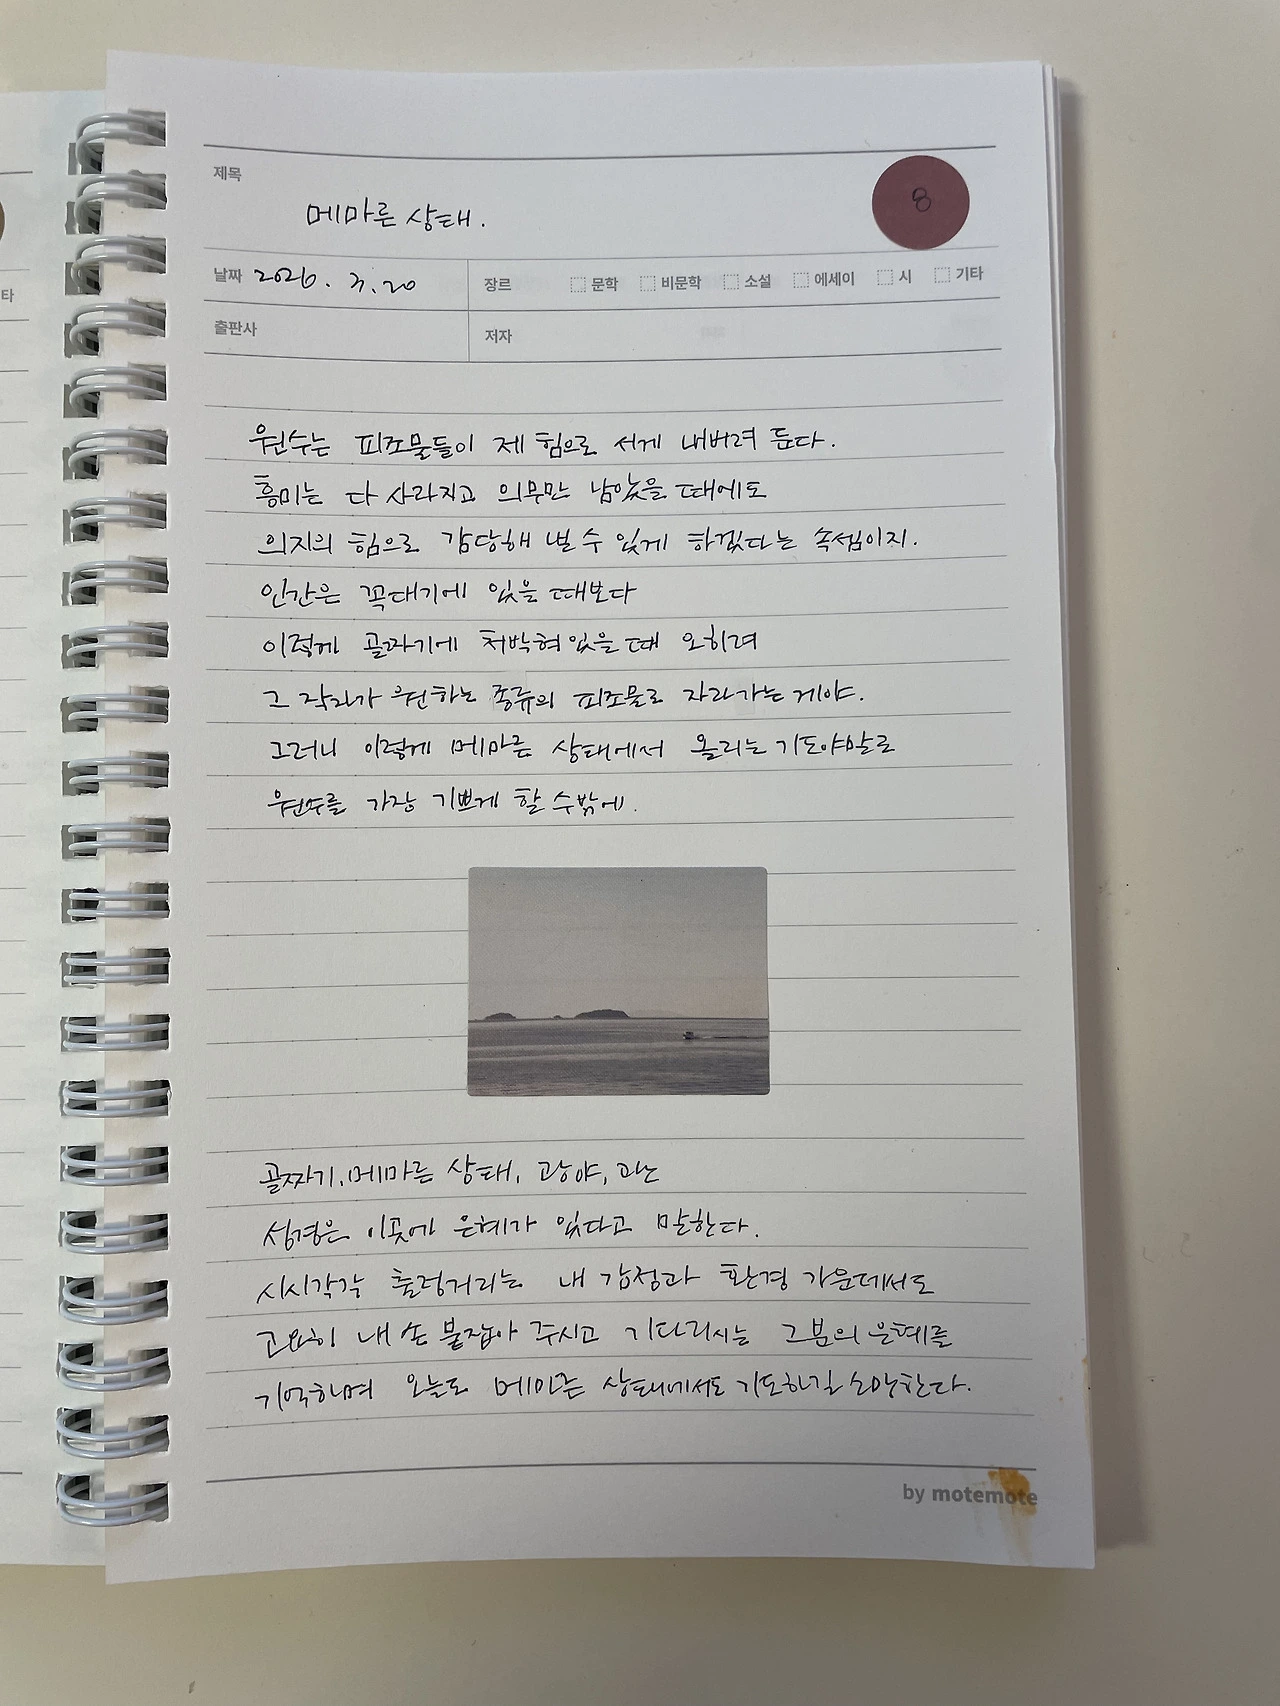 제목
8
메마른 상태.
날짜 2026. 3. 20 장르 문학 비문학 소설 에세이 시 기타
타
출판사 저자
원수는 피조물들이 제 힘으로 서게 내버려 둔다.
흥미는 다 사라지고 의무만 남았을 때에도
의지의 힘으로 감당해 낼 수 있게 하겠다는 속셈이지.
인간은 꼭대기에 있을 때보다
이렇게 골짜기에 처박혀 있을 때 오히려
그 작자가 원하는 종류의 피조물로 자라가는 게야.
그러니 이렇게 메마른 상태에서 올리는 기도야말로
원수를 가장 기쁘게 할 수밖에.
골짜기, 메마른 상태, 광야, 고난
성경은 이곳에 은혜가 있다고 말한다.
시시각각 출렁거리는 내 감정과 환경 가운데서도
고요히 내 손 붙잡아 주시고 기다리시는 그분의 은혜를
기억하며 오늘도 메마른 상태에서도 기도하길 소망한다.
by motemote